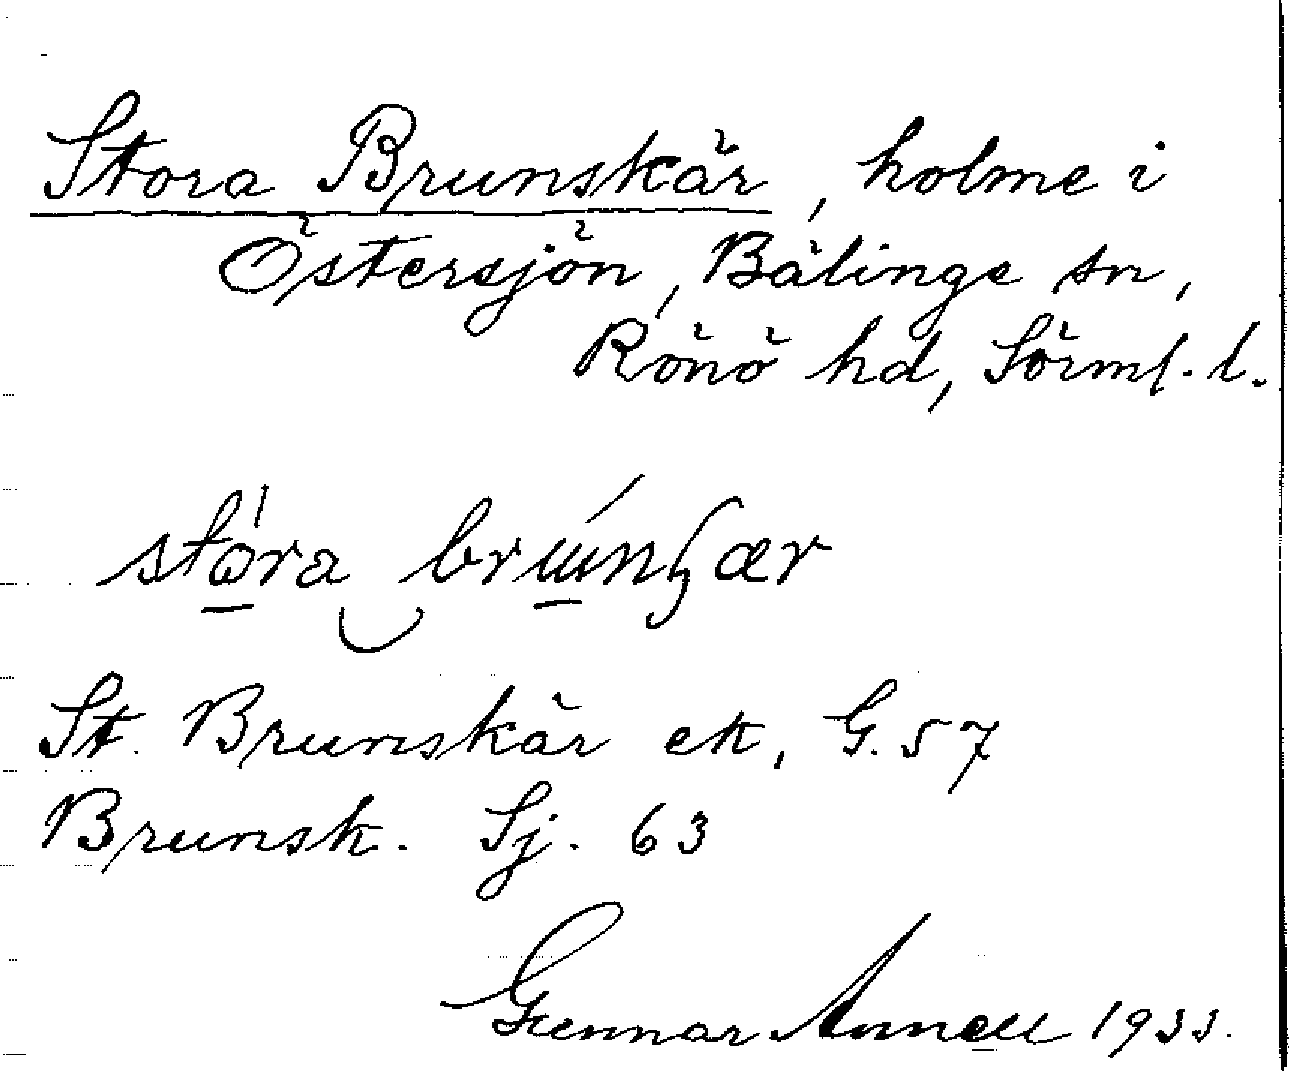 Stora Brunskär, holme i
Östersjön, Bälinge sn,
Rönö hd, Sörml. l.
stora
St. Brunskär ek, G. 57
Brunsk. Sj. 63
Gunnar Annell 1933.